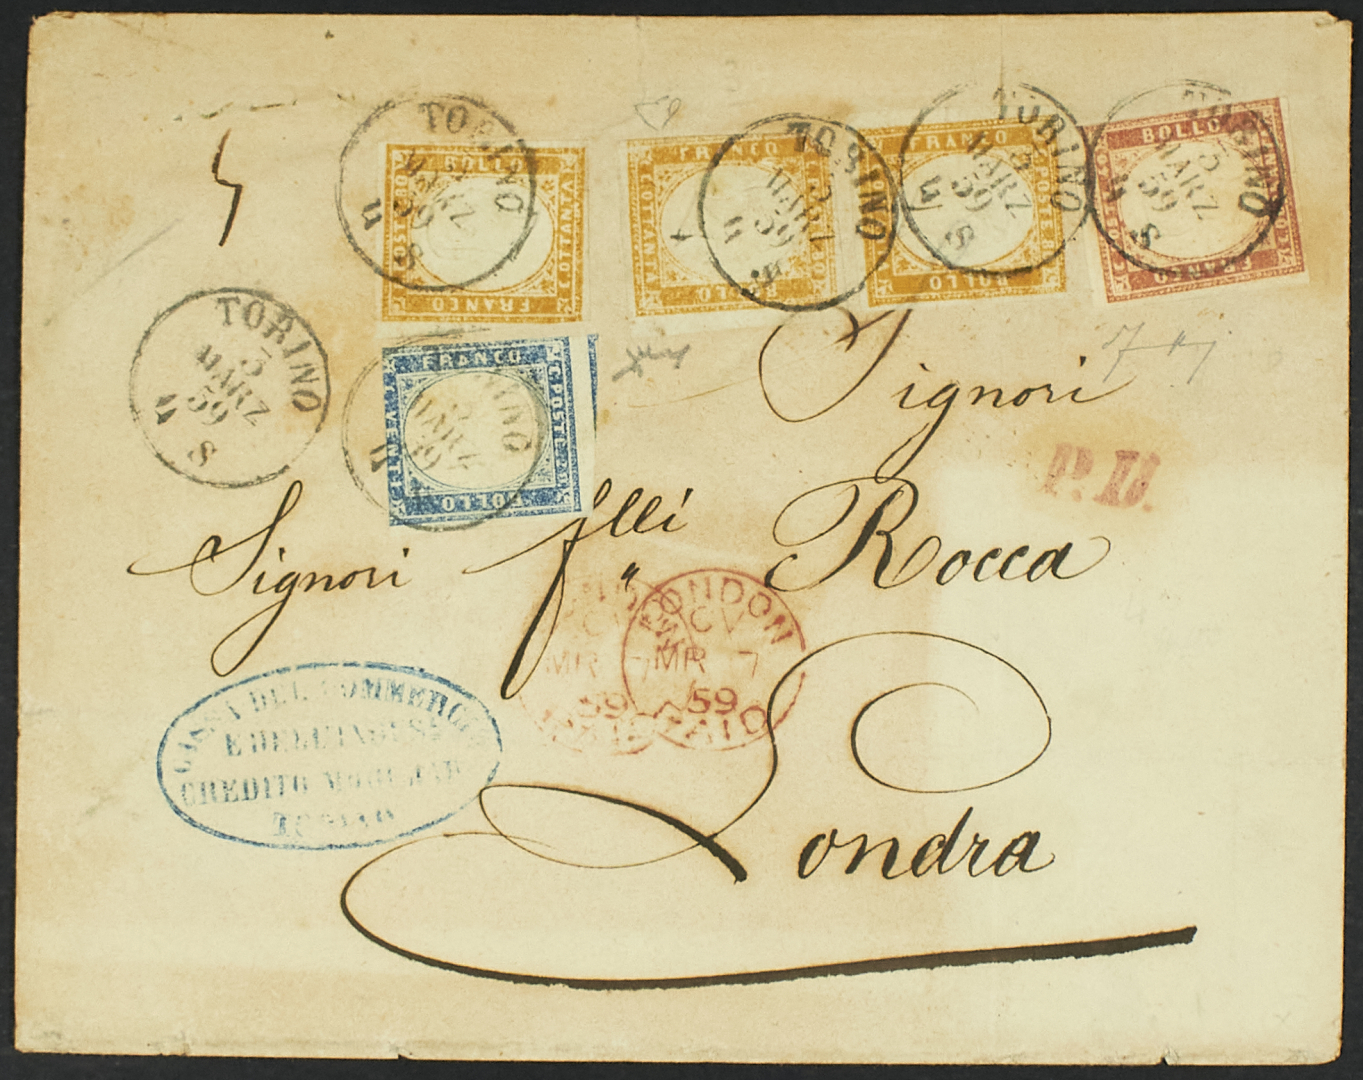 TORINO 5 MARZ 59 4 S
BOLLO C. OTTANTA FRANCO
TORINO 5 MARZ 59 4 S
FRANCO BOLLO
TORINO 5 MARZ 59 4 S
FRANCO BOLLO
TORINO 5 MARZ 59 4 S
BOLLO
TORINO 5 MARZ 59 4 S
FRANCO C. POSTE BOLLO C. VENTI
Signori
P.D.
Signori flli Rocca
LONDON CV MR 7 59 PAID
MR 7 59
CASSA DEL COMMERCIO
E DELL'INDUSa
CREDITO MOBILIARE
TORINO
Londra